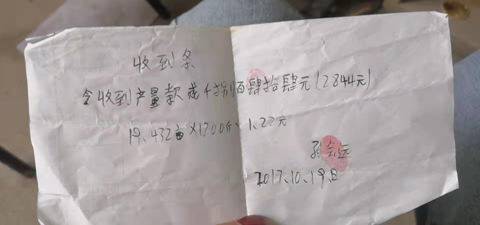 收到条
今收到产量款贰仟捌佰肆拾肆元(2844元)
19.432亩×1200斤×1.22元
2017.10.19日